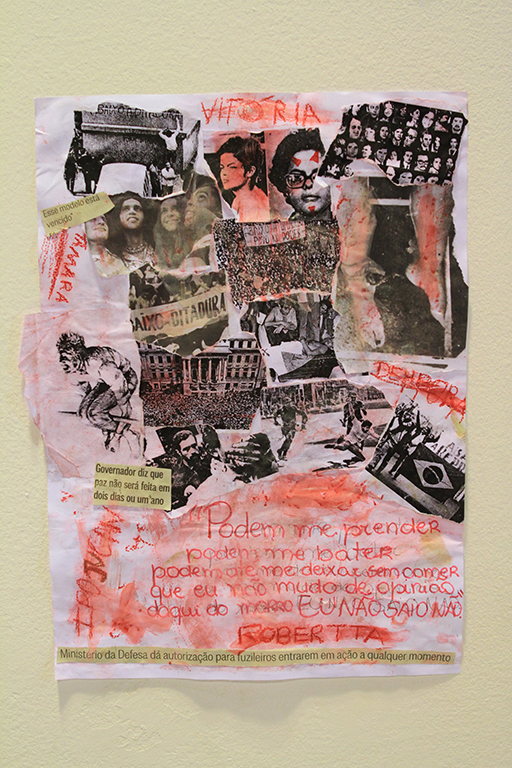 VITÓRIA
Esse modelo está
vencido"
TAMARA
BAIXO-DITADURA
Governador diz que
paz não será feita em
dois dias ou um ano
"Podem me prender
podem me bater
podem até me deixar sem comer
que eu não mudo de opinião
daqui do morro EU NÃO SAIO NÃO
ROBERTTA
Ministério da Defesa dá autorização para fuzileiros entrarem em ação a qualquer momento